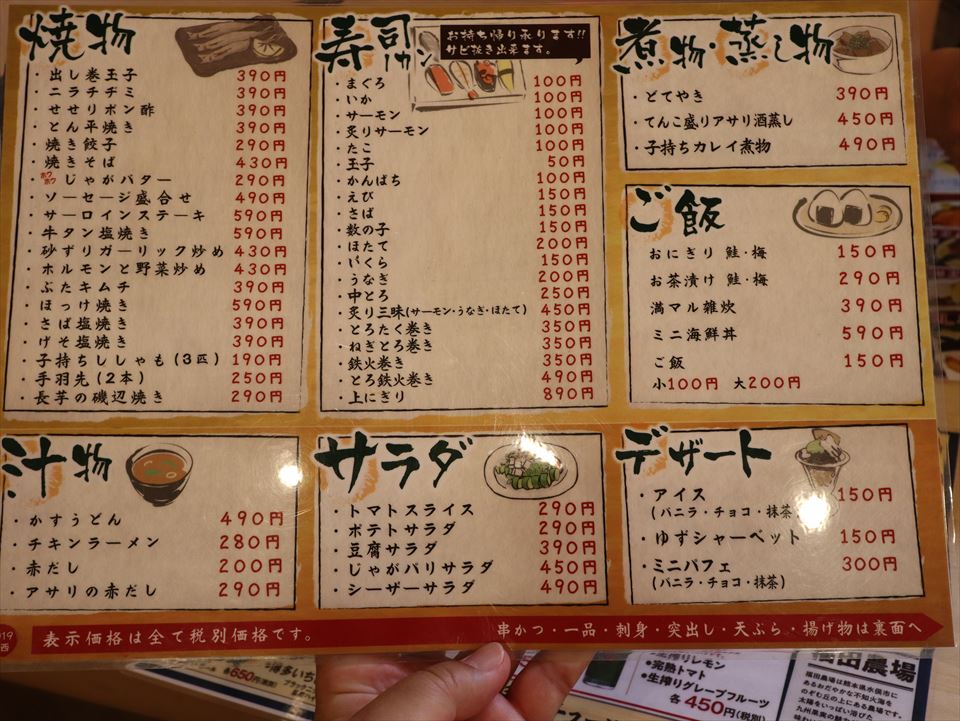 焼物
・出し巻玉子 390円
・ニラチヂミ 390円
・せせりポン酢 390円
・とん平焼き 390円
・焼き餃子 290円
・焼きそば 430円
・ホクホク じゃがバター 290円
・ソーセージ盛合せ 490円
・サーロインステーキ 590円
・牛タン塩焼き 590円
・砂ずりガーリック炒め 430円
・ホルモンと野菜炒め 430円
・ぶたキムチ 390円
・ほっけ焼き 590円
・さば塩焼き 390円
・げそ塩焼き 390円
・子持ちししゃも(3匹) 190円
・手羽先(2本) 250円
・長芋の磯辺焼き 290円
寿司 (一カン)
お持ち帰り承ります!!
サビ抜き出来ます。
・まぐろ 100円
・いか 100円
・サーモン 100円
・炙りサーモン 100円
・たこ 100円
・玉子 50円
・かんぱち 100円
・えび 150円
・さば 150円
・数の子 150円
・ほたて 200円
・いくら 150円
・うなぎ 200円
・中とろ 250円
・炙り三昧(サーモン・うなぎ・ほたて) 450円
・とろたく巻き 350円
・ねぎとろ巻き 350円
・鉄火巻き 350円
・とろ鉄火巻き 490円
・上にぎり 890円
煮物・蒸し物
・どてやき 390円
・てんこ盛りアサリ酒蒸し 450円
・子持ちカレイ煮物 490円
ご飯
おにぎり 鮭・梅 150円
お茶漬け 鮭・梅 290円
満マル雑炊 390円
ミニ海鮮丼 590円
ご飯 150円
小100円 大200円
汁物
・かすうどん 490円
・チキンラーメン 280円
・赤だし 200円
・アサリの赤だし 290円
サラダ
・トマトスライス 290円
・ポテトサラダ 290円
・豆腐サラダ 390円
・じゃがパリサラダ 450円
・シーザーサラダ 490円
デザート
・アイス 150円
(バニラ・チョコ・抹茶)
・ゆずシャーベット 150円
・ミニパフェ 300円
(バニラ・チョコ・抹茶)
表示価格は全て税別価格です。
串かつ・一品・刺身・突出し・天ぷら・揚げ物は裏面へ
各650円(税別)
・生搾りレモン
・完熟トマト
・生搾りグレープフルーツ
各450円(税別)
福田農場
福田農場は熊本県水俣市に
あるおだやかな不知火海を
のぞむ丘の上にある農場です。